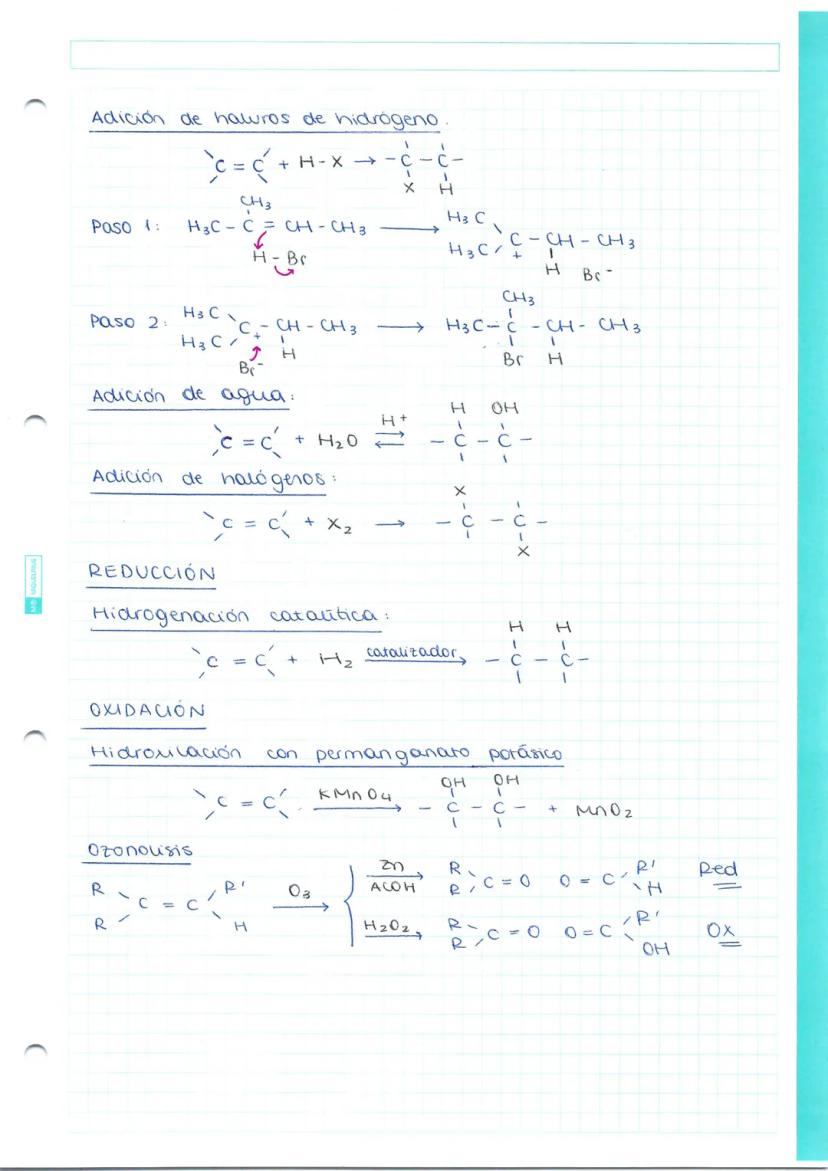 Adición de haluros de hidrógeno.
C = C + H - X → - C - C -
X H
CH3
Paso 1: H3C - C = CH - CH3 → H3C H3C C + - CH - CH3
H - Br H Br -
CH3
Paso 2: H3C H3C C + - CH - CH3 → H3C - C - CH - CH3
Br - H Br H
Adición de agua:
H OH
C = C + H2O H+ ⇌ - C - C -
Adición de halógenos:
X
C = C + X2 → - C - C -
X
REDUCCIÓN
Hidrogenación catalítica:
H H
C = C + H2 catalizador → - C - C -
OXIDACIÓN
Hidroxilación con permanganato potásico
OH OH
C = C KMnO4 → - C - C - + MnO2
Ozonolisis
R R C = C R' H O3 →
Zn ACOH → R R C = O O = C R' H Red
H2O2 → R R C = O O = C R' OH Ox